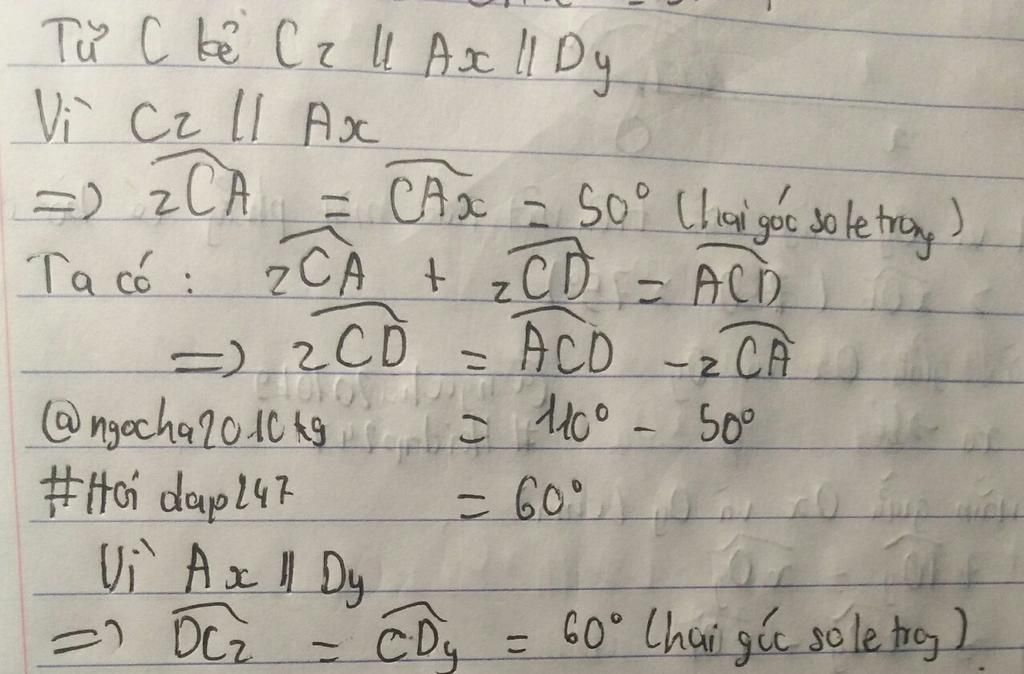 Từ C kẻ Cz // Ax // Dy
Vì Cz // Ax
=> zCA = CAx = 50° (hai góc so le trong)
Ta có: zCA + zCD = ACD
=> zCD = ACD - zCA
@ngocha2010kg = 110° - 50°
#Hoi dap247 = 60°
Vì Ax // Dy
=> DCz = CDy = 60° (hai góc so le trog)